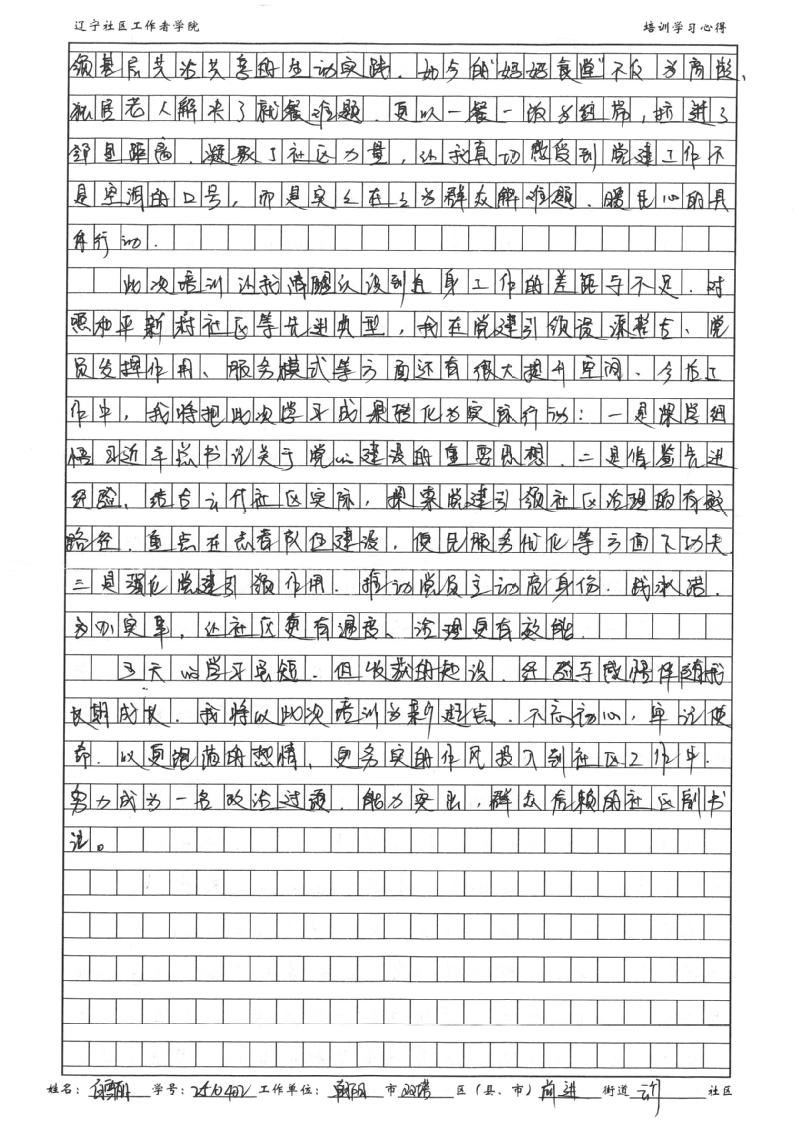 辽宁社区工作者学院 培训学习心得
领基层共治共享的生动实践。如今的“妈妈食堂”不仅为高龄、
独居老人解决了就餐难题，更以一餐一饭为纽带，拉进了
邻里距离，凝聚了社区力量，让我真切感受到党建工作不
是空洞的口号，而是实之在之为群众解难题、暖民心的具
体行动。
此次培训让我清醒认识到自身工作的差距与不足，对
照和平新村社区等先进典型，我在党建引领资源整合、党
员发挥作用、服务模式等方面还有很大提升空间。今后工
作中，我将把此次学习成果转化为实际行动：一是深学细
悟习近平总书记关于党的建设的重要思想。二是借鉴先进
经验，结合 社区实际，探索党建引领社区治理的有效
路径，重点在志愿队伍建设，便民服务优化等方面下功夫
三是强化党建引领作用，推动党员主动亮身份、践承诺、
办实事，让社区更有温度、治理更有效能。
三天的学习虽短，但收获的 ，经验与感悟伴随我
长期成长，我将以此次培训为新起点，不忘初心，牢记使
命，以更饱满的热情，更务实的作风投入到社区工作中。
努力成为一名政治过硬、能力突出，群众信赖的社区副书
记。
姓名： 学号：2510402 工作单位：朝阳 市 双塔 区（县、市） 前进 街道 社区